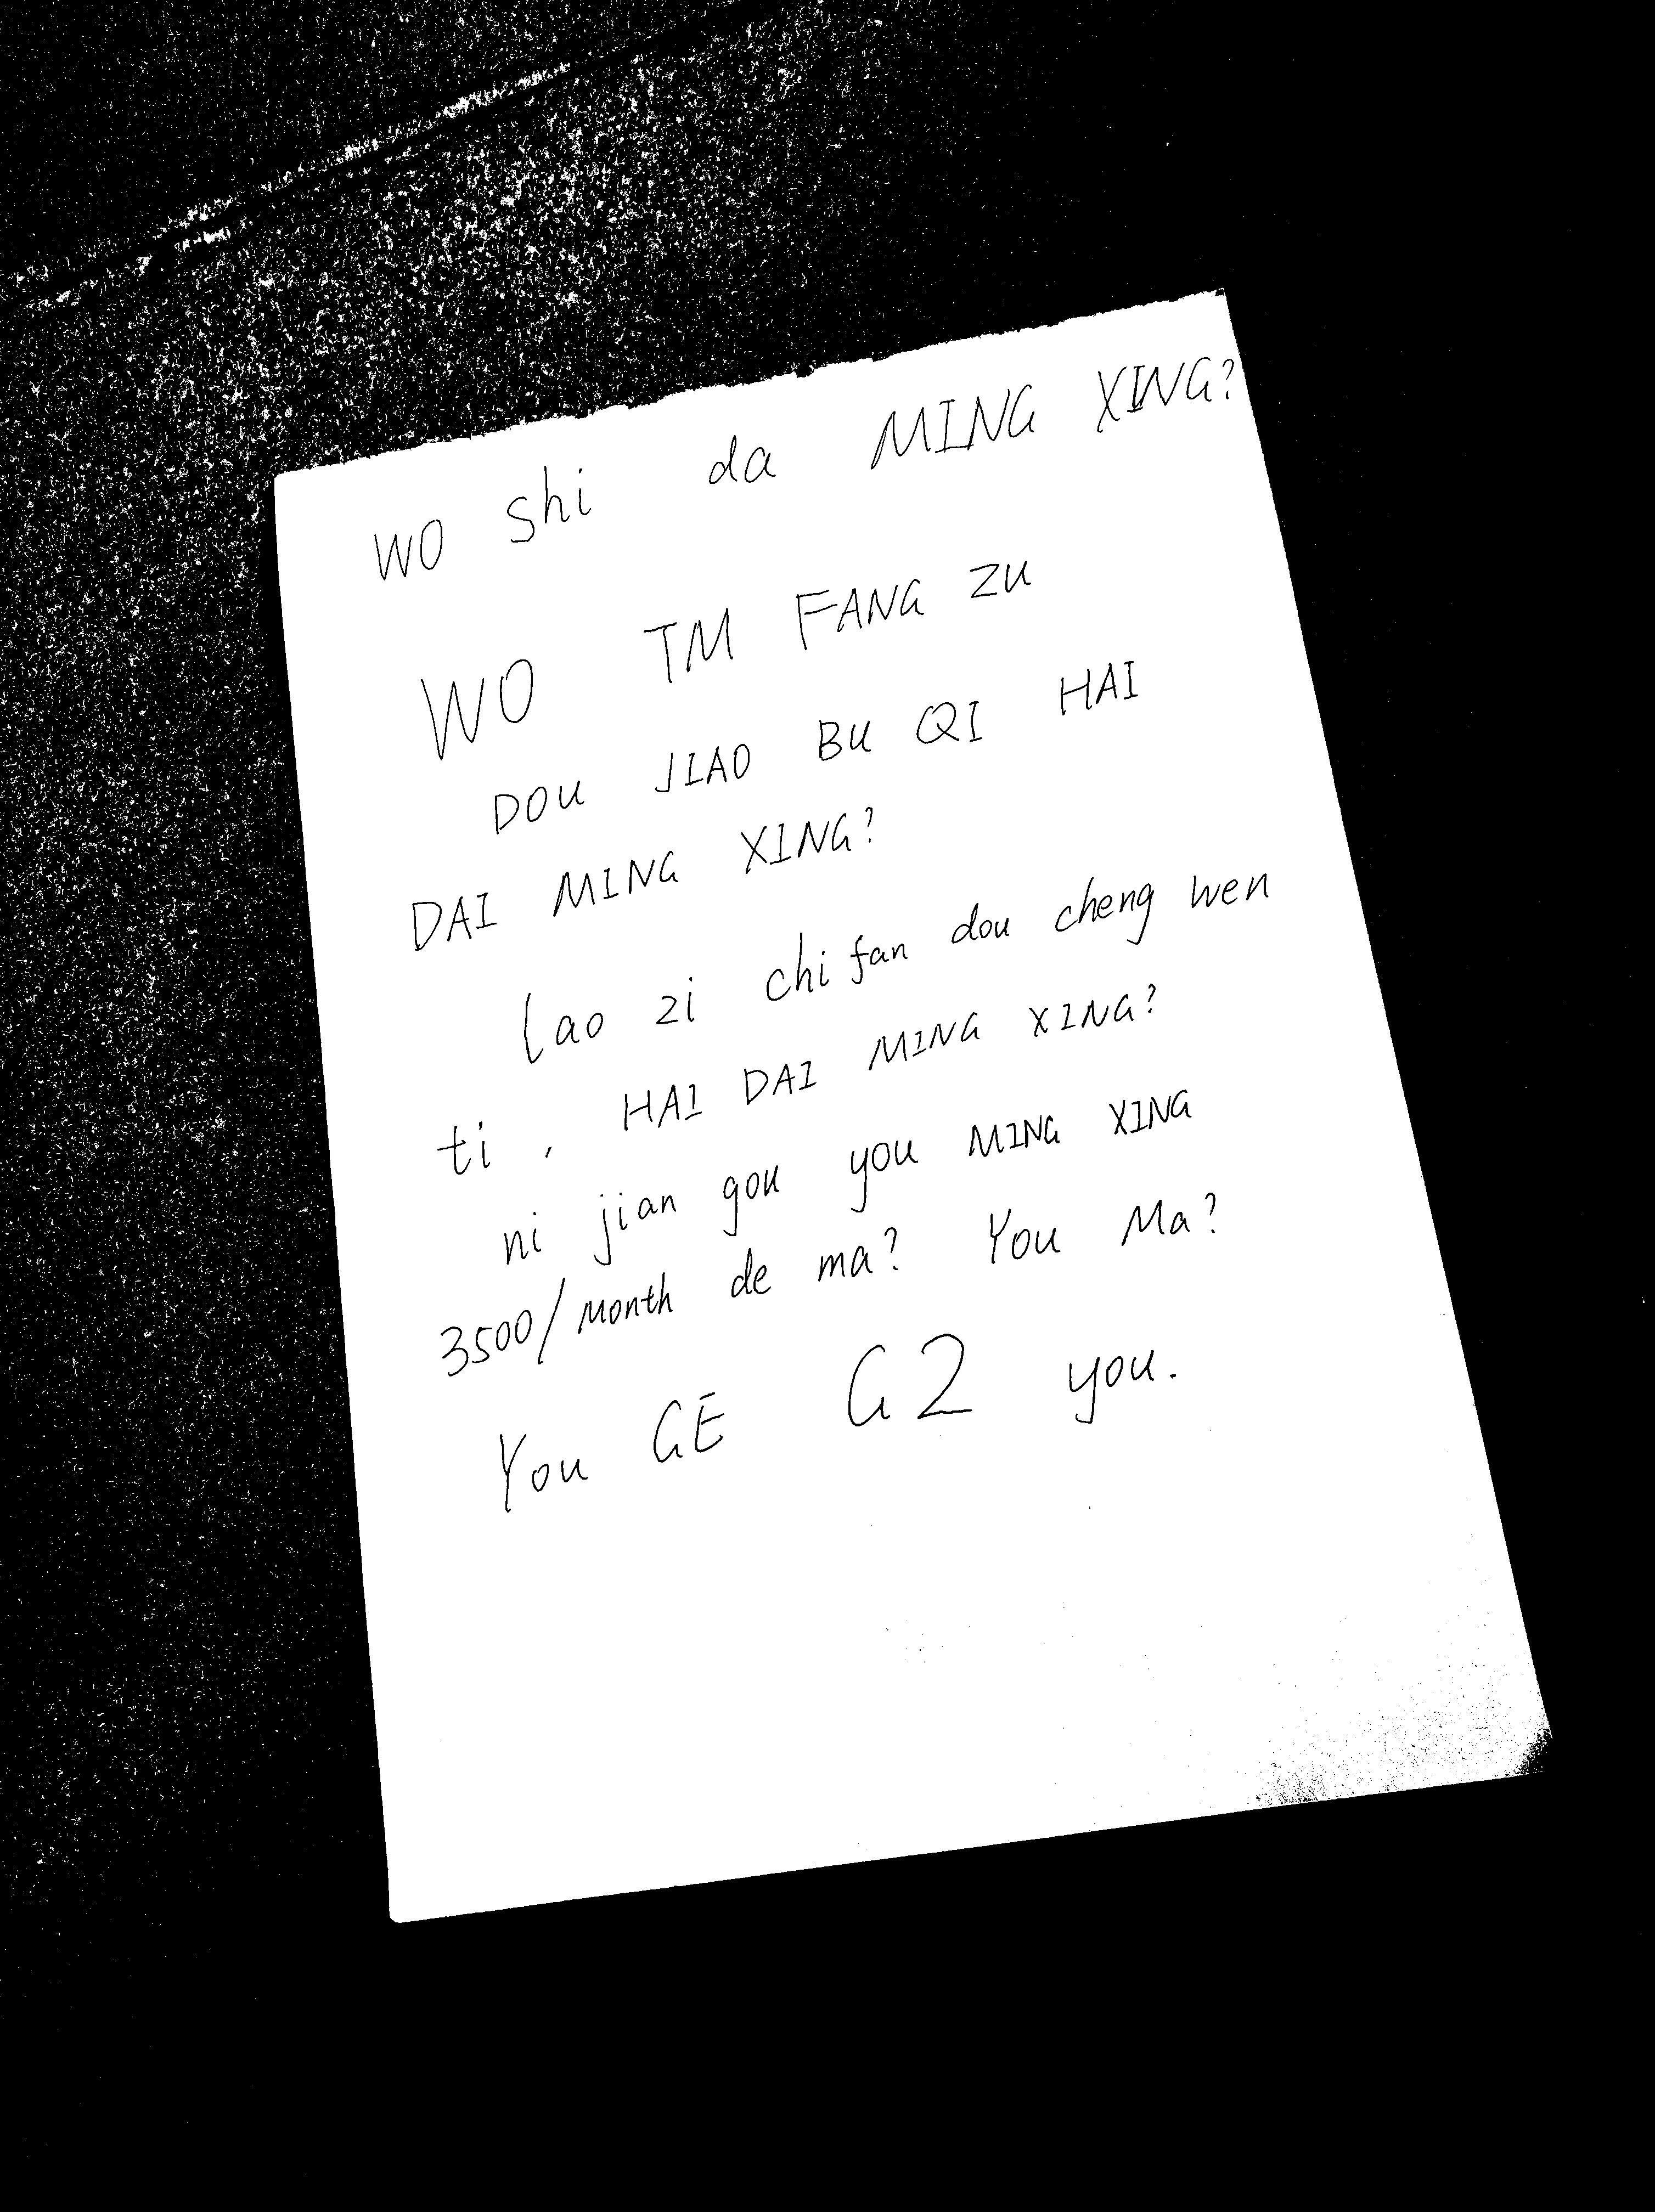 WO shi da MING XING?
WO TM FANG ZU
DOU JIAO BU QI HAI
DAI MING XING?
lao zi chi fan dou cheng wen
ti , HAI DAI MING XING?
ni jian gou you MING XING
3500/month de ma? You Ma?
You GE G2 you.